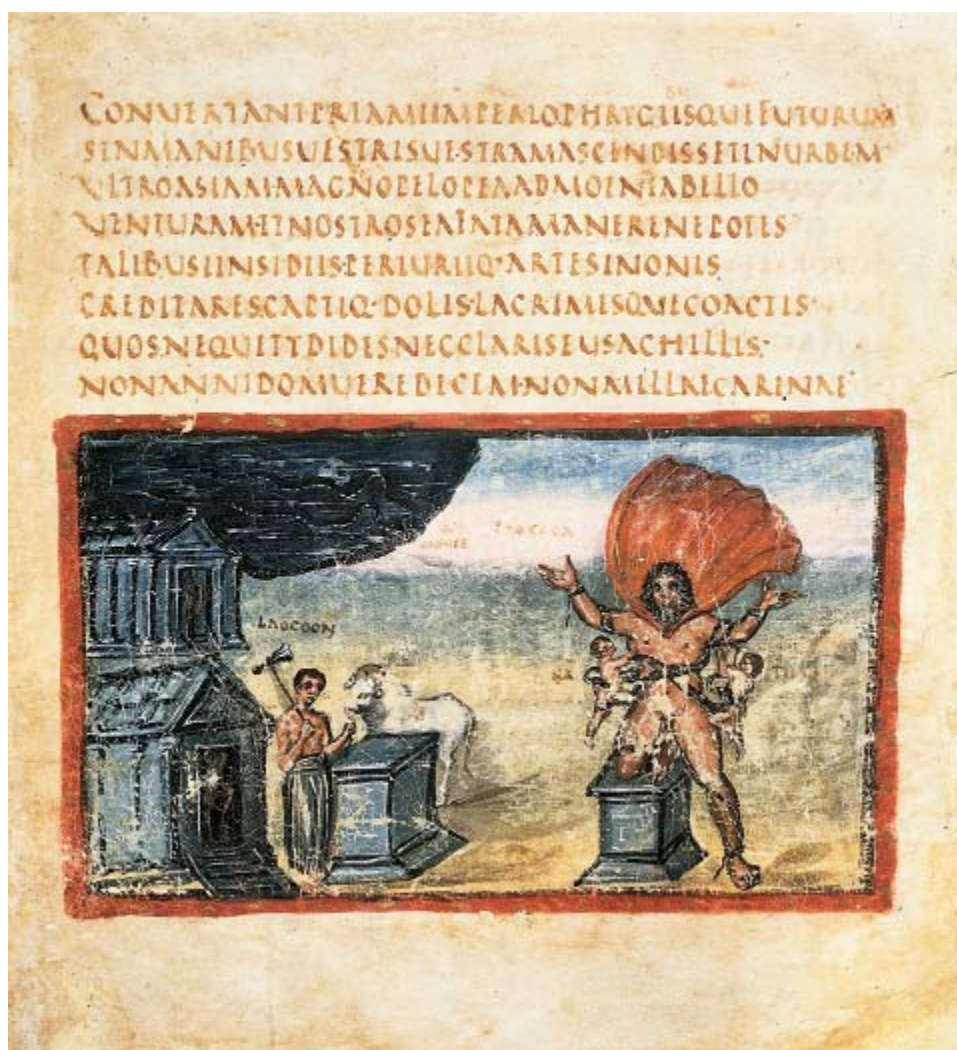 CONUERTANTPRIAMIIMPERIOPHRYGIISQUEFUTURUM
SINMANIBUSUESTRISUESTRAMASCENDISSETINURBEM
ULTROASIAMMAGNOPELOPEAADMOENIABELLO
UENTURAMETNOSTROSEAFATAMANERENEPOTES
TALIBUSINSIDIIS·PERIURIIQ·ARTESINONIS
CREDITARESCAPTIQ·DOLIS·LACRIMISQUECOACTIS·
QUOSNEQUETYDIDESNECCLARISEUSACHILLIS·
NONANNIDOMUEREDECEM·NONMILLECARINAE
LAOCOON